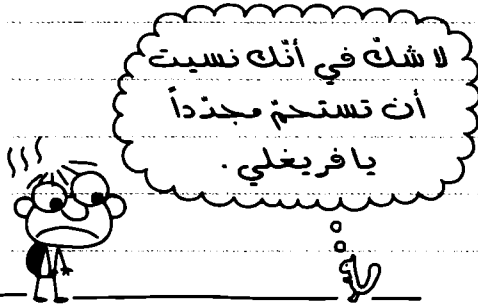 لا شكّ في أنّك نسيت
أن تستحمّ مجدّداً
يا فريغلي.